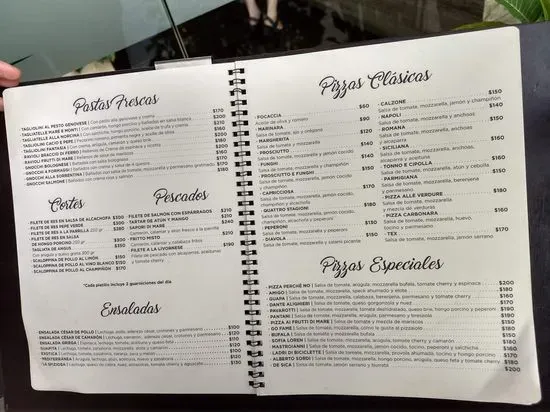 Pastas Frescas
TAGLIOLINI AL PESTO GENOVESE | Con pasta alho genovesa y crema $170
TAGLIATELLE MARE E MONTI | Con camarón, hongo porcino y flameado en salsa blanca $200
TAGLIATELLE ALLA NORCINA | Con salchicha, hongo porcino, aceite de trufa y crema $210
TAGLIOLINI CACIO E PEPE | Pecorino romano, pimienta negra y aceite de oliva $160
TAGLIOLINI FANTASIA | Con crema, arúgula, camarón y queso brie $200
RAVIOLI BRACCIO DI FERRO | Rellenos de espinaca y ricotta $180
RAVIOLI FRUTTI DI MARE | Rellenos de salsa de mariscos $200
GNOCCHI BOLOGNESE | Bañados con salsa bolognesa $160
GNOCCHI 4 FORMAGGI | Bañados con crema y salsa de 4 quesos $170
GNOCCHI ALLA SORRENTINA | Bañados con salsa de tomate, mozzarella y parmesano gratinado $170
GNOCCHI SALMONE | Bañados con salmón, crema rosa y salmón $180
Cortes
FILETE DE RES EN SALSA DE ALCACHOFA $300
FILETE DE RES PEPE VERDE $300
FILETE DE RES A LA PARRILLA 250 gr $280
FILETE DE RES EN SALSA
DE HONGO PORCINO 250 gr $300
TAGLIATA DE ANGUS $350
Con arúgula y queso grana 300 gr
SCALOPPINA DE POLLO AL LIMÓN $150
SCALOPPINA DE POLLO AL VINO BLANCO $150
SCALOPPINA DE POLLO AL CHAMPIÑÓN $170
Pescados
FILETE DE SALMÓN CON ESPÁRRAGOS $210
TARTAR DE ATÚN Y MANGO $210
SAPORI DI MARE $240
Camarón, calamar y atún en la parrilla
FRITTO MISTO $210
Camarón, calamar y calabaza fritos
FILETE A LA LIVORNESE $190
Filete de pescado con alcaparras, aceitunas
y tomate cherry
*Cada platillo incluye 2 guarniciones del día
Ensaladas
ENSALADA CÉSAR DE POLLO | Lechuga, pollo, aderezo césar, crutones y parmesano $100
ENSALADA CÉSAR DE CAMARÓN | Lechuga, camarón, aderezo césar, crutones y parmesano $120
ENSALADA GRIEGA | Espinaca, lechuga, tomate, durazno y queso feta $110
TONNATA | Lechuga, zanahoria, tomate, mozzarella y atún $120
EXOTICA | Lechuga, tomate, zanahoria, naranja, pera y nueces $110
MEDITERRÁNEA | Arúgula, lechuga, apio, aceituna, nuez y zanahoria $120
LA SFIZIOSA | Queso de cabra, nuez, arándanos, tomate cherry y aguacate $150
Pizzas Clásicas
FOCACCIA $60
Aceite de oliva y romero
MARINARA $90
Salsa de tomate, ajo y orégano
MARGHERITA $120
Salsa de tomate y mozzarella
PROSCIUTTO $140
Salsa de tomate, mozzarella y jamón cocido
FUNGHI $140
Salsa de tomate, mozzarella y champiñón
PROSCIUTTO E FUNGHI $150
Salsa de tomate, mozzarella, jamón cocido
champiñón
CAPRICCIOSA $170
Salsa de tomate, mozzarella, jamón cocido,
champiñón, alcachofa y aceituna
QUATTRO STAGIONI $180
Salsa de tomate, mozzarella, jamón cocido,
champiñón, alcachofa y peperoni
PEPERONI $150
Salsa de tomate, mozzarella y peperoni
DIAVOLA $150
Salsa de tomate, mozzarella y salami picante
CALZONE $150
Salsa de tomate, mozzarella, jamón y champiñón
NAPOLI $140
Salsa de tomate, mozzarella y anchoas
ROMANA $150
Salsa de tomate, mozzarella, anchoas
y alcaparra
SICILIANA $160
Salsa de tomate, mozzarella, anchoas,
alcaparra y aceituna
TONNO E CIPOLLA $160
Salsa de tomate, mozzarella, atún y cebolla
PARMIGIANA $150
Salsa de tomate, mozzarella, berenjena
y parmesano
PIZZA ALLE VERDURE $180
Salsa de tomate, mozzarella
y mezcla de verduras
PIZZA CARBONARA $160
Salsa de tomate, mozzarella, huevo,
tocino y parmesano
TEX $170
Salsa de tomate, mozzarella, jamón serrano
Pizzas Especiales
PIZZA PERCHÉ NO | Salsa de tomate, arúgula, mozzarella, tomate cherry y espinaca $200
AMIGO | Salsa de tomate, mozzarella, speck ahumado y elote $180
GUAPA | Salsa de tomate, mozzarella, calabaza, berenjena, parmesano y tomate cherry $160
DANTE ALIGHIERI | Salsa de tomate, mozzarella, queso gorgonzola y nuez $170
PAVAROTTI | Salsa de tomate, mozzarella, tomate deshidratado, queso brie, hongo porcino y peperoni $190
PANTANI | Salsa de tomate, mozzarella, arúgula, parmesano y bresaola $190
PIZZA AI FRUTTI DI MARE | Salsa de tomate, mozzarella y mezcla de mariscos $190
GO FAME | Salsa de tomate, mozzarella, como le guste al pizzaiolo $180
BUFALA | Salsa de tomate, mozzarella de búfala $150
SOFIA LOREN | Salsa de tomate, mozzarella, arúgula, tomate cherry y camarón $180
MASTROIANNI | Salsa de tomate, mozzarella, jamón cocido, tocino, peperoni y salchicha $180
LADRI DI BICICLETTE | Salsa de tomate, mozzarella, provola ahumado, tocino y hongo porcino $160
ALBERTO SORDI | Salsa de tomate, mozzarella, hongo porcino, arúgula, queso feta y tomate cherry $180
DE SICA | Salsa de tomate, jamón serrano y burrata $200